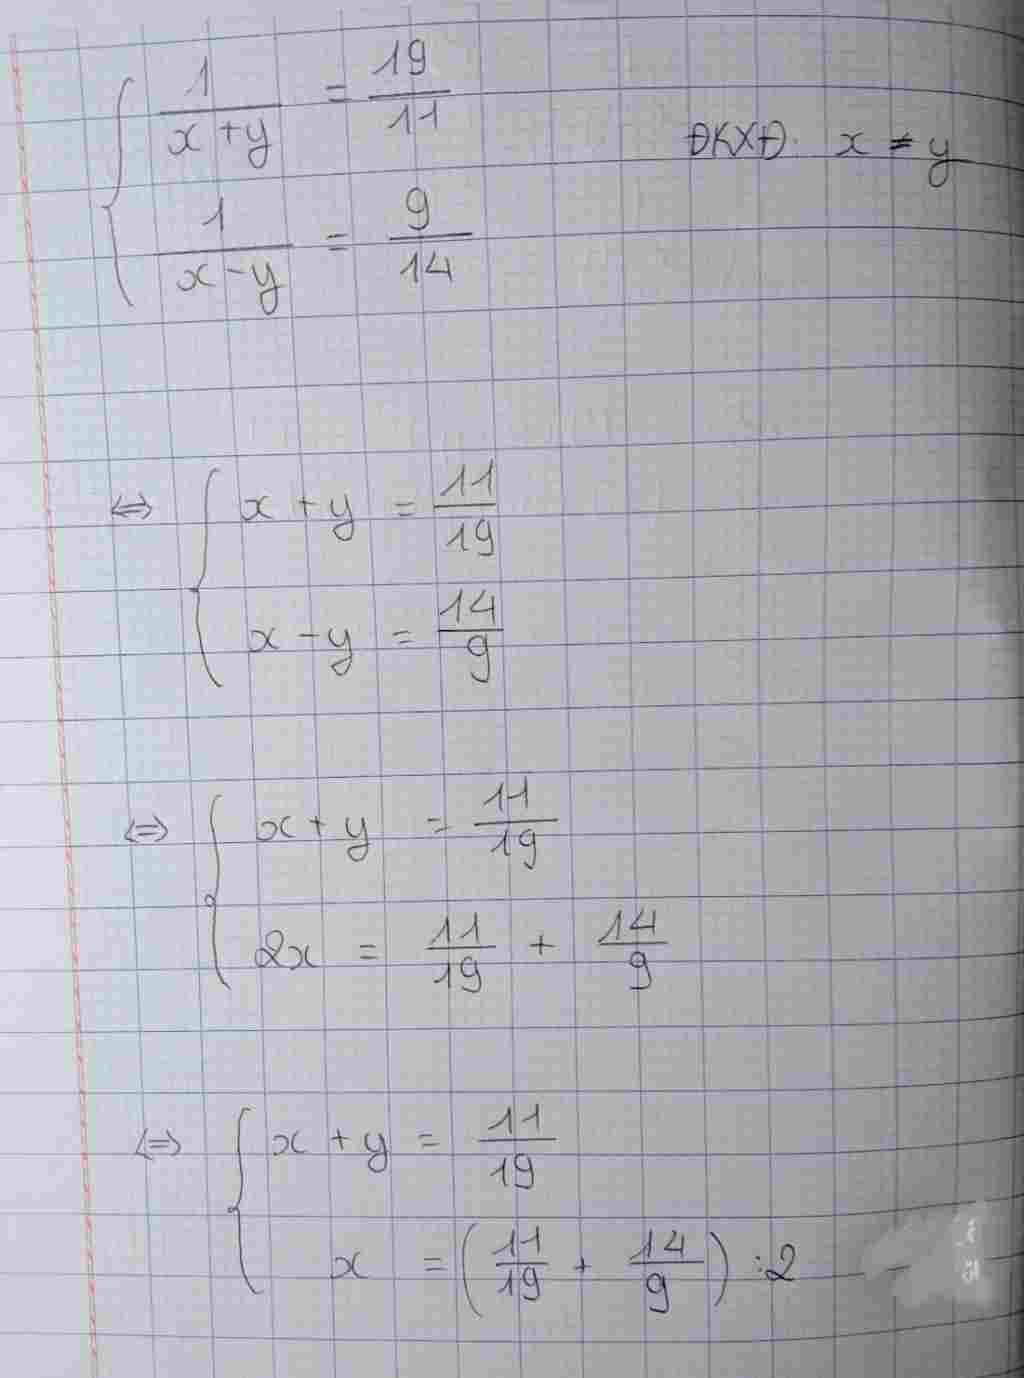 { 1/(x+y) = 19/11 ĐKXĐ. x ≠ y
1/(x-y) = 9/14
⇔ { x + y = 11/19
x - y = 14/9
⇔ { x + y = 11/19
2x = 11/19 + 14/9
⇔ { x + y = 11/19
x = (11/19 + 14/9) : 2